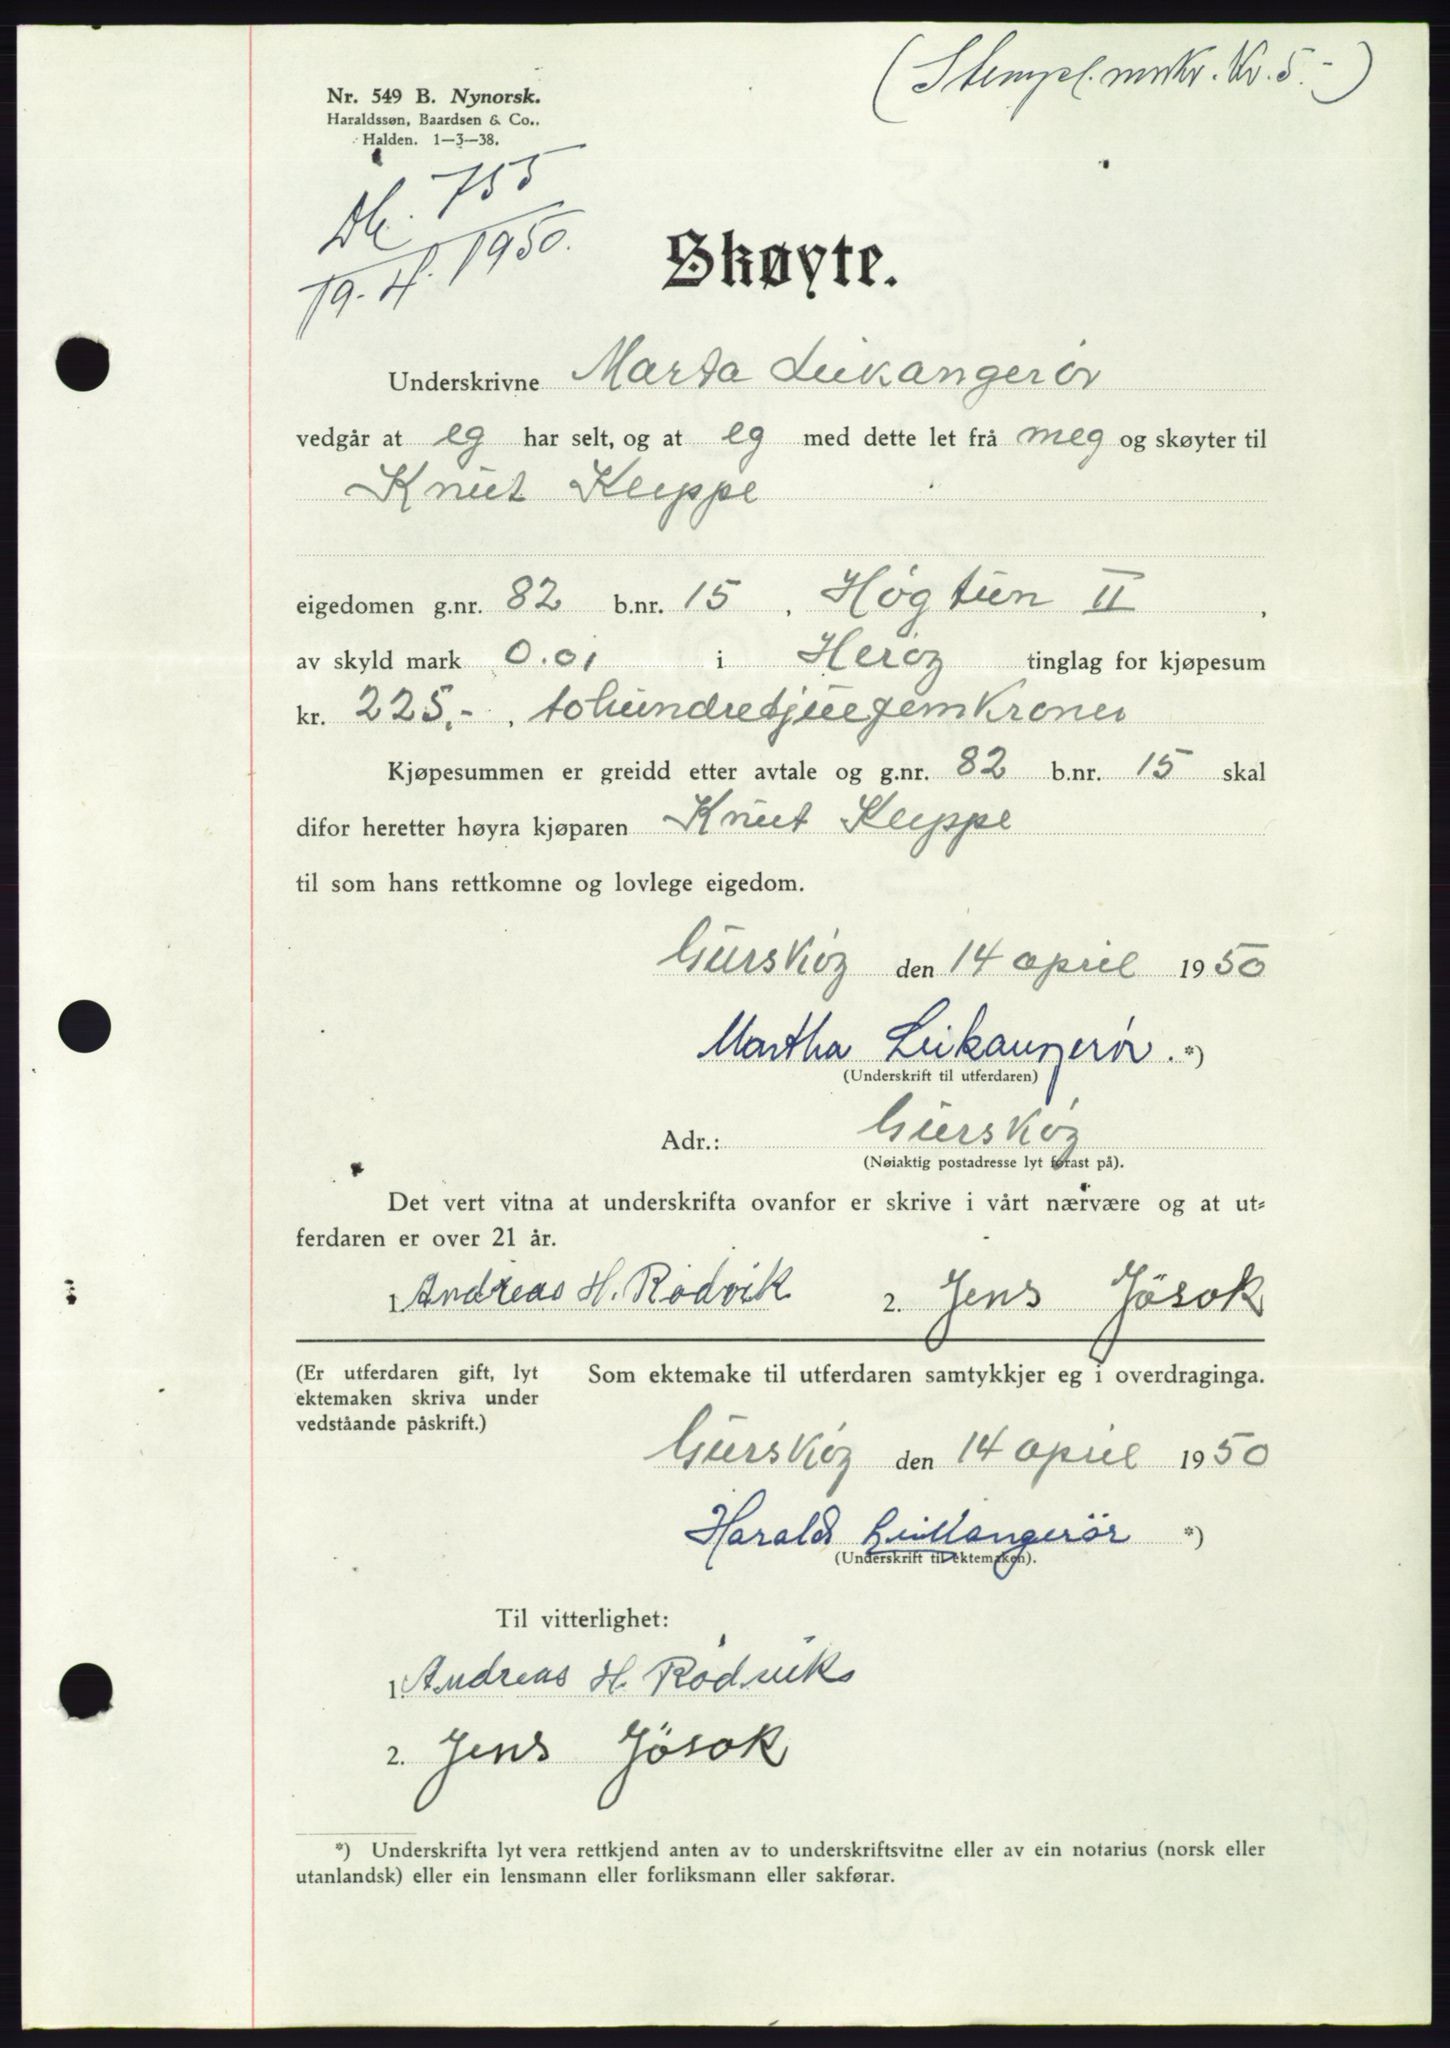 (Stempl.mrkr. Kr. 5.-)
Nr. 549 B. Nynorsk.
Haraldssøn, Baardsen & Co..
Halden. 1—3—38.
Db. 755
19.-4. 1950.
Skøyte.
Underskrivne Marta Leikangerör
vedgår at eg har selt, og at eg med dette let frå meg og skøyter til
Knut Keppe
eigedomen g.nr. 82 b.nr. 15, Høgtun II,
av skyld mark 0.01 i Herøy tinglag for kjøpesum
kr. 225,-, tohundretjuefemkroner
Kjøpesummen er greidd etter avtale og g.nr. 82 b.nr. 15 skal
difor heretter høyra kjøparen Knut Keppe
til som hans rettkomne og lovlege eigedom.
Gurskøy den 14 april 1950
Martha Leikangerör. *)
(Underskrift til utferdaren)
Adr.: Gurskøy
(Nøiaktig postadresse lyt førast på).
Det vert vitna at underskrifta ovanfor er skrive i vårt nærvære og at ut=
ferdaren er over 21 år.
1. Andreas H. Rødvik 2. Jens Jösok
(Er utferdaren gift, lyt
ektemaken skriva under
vedståande påskrift.)
Som ektemake til utferdaren samtykkjer eg i overdraginga.
Gurskøy den 14 april 1950
Harald Leikangerör *)
(Underskrift til ektemaken).
Til vitterlighet:
1. Andreas H. Rødvik
2. Jens Jösok
*) Underskrifta lyt vera rettkjend anten av to underskriftsvitne eller av ein notarius (norsk eller
utanlandsk) eller ein lensmann eller forliksmann eller sakførar.